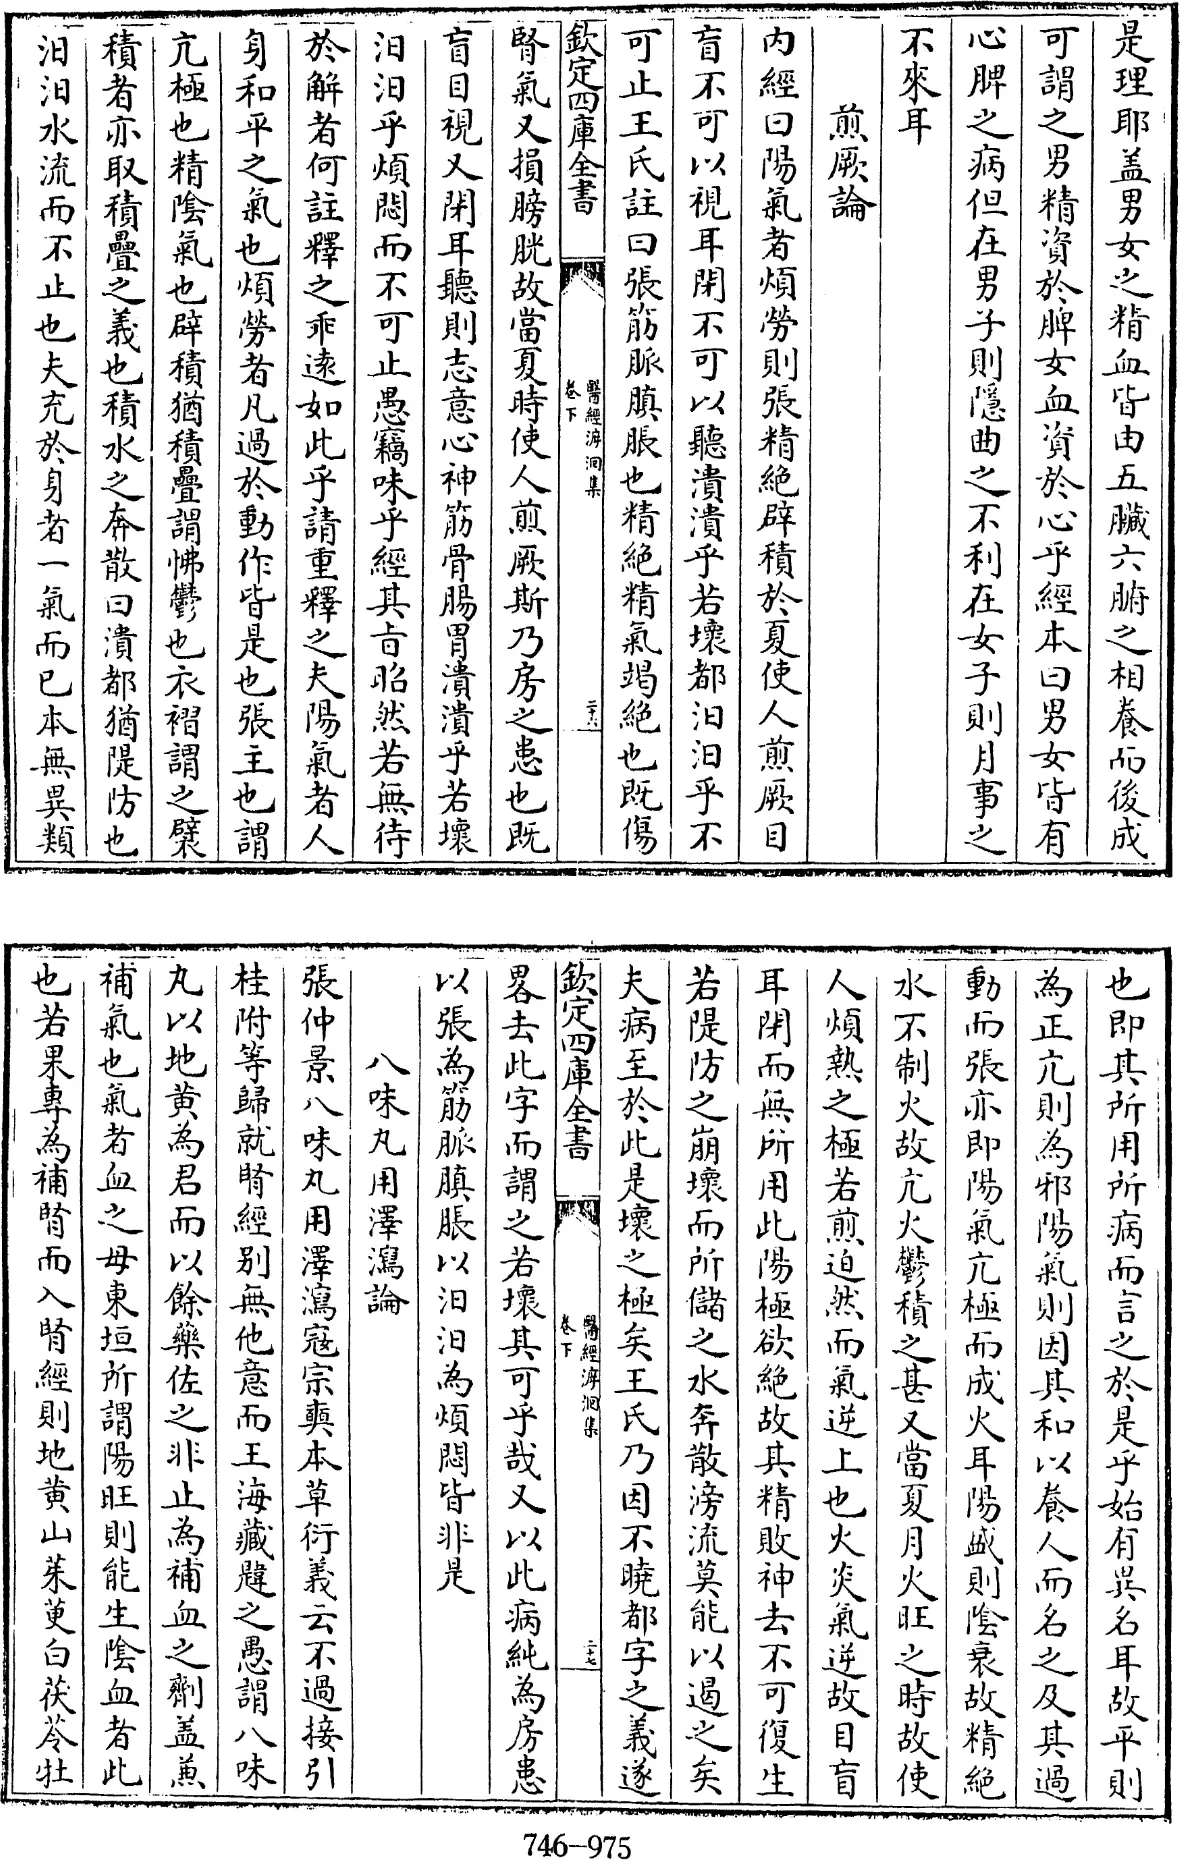 是理耶盖男女之精血皆由五臟六腑之相養而後成
可謂之男精資於脾女血資於心乎經本曰男女皆有
心脾之病但在男子則隱曲之不利在女子則月事之
不來耳
煎厥論
内經曰陽氣者煩勞則張精絶辟積於夏使人煎厥目
盲不可以視耳閉不可以聽潰潰乎若壞都汩汩乎不
可止王氏註曰張筋脈䐜脹也精絶精氣竭絶也既傷
欽定四庫全書
醫經溯洄集
卷下
二十六
腎氣又損膀胱故當夏時使人煎厥斯乃房之患也既
盲目視又閉耳聽則志意心神筋骨腸胃潰潰乎若壞
汩汩乎煩悶而不可止愚竊味乎經其旨昭然若無待
於解者何註釋之乖逺如此乎請重釋之夫陽氣者人
身和平之氣也煩勞者凡過於動作皆是也張主也謂
亢極也精陰氣也辟積猶積疊謂怫鬱也衣褶謂之襞
積者亦取積疊之義也積水之奔散曰潰都猶隄防也
汩汩水流而不止也夫充於身者一氣而已本無異類
也即其所用所病而言之於是乎始有異名耳故平則
為正亢則為邪陽氣則因其和以養人而名之及其過
動而張亦即陽氣亢極而成火耳陽盛則陰衰故精絶
水不制火故亢火鬱積之甚又當夏月火旺之時故使
人煩熱之極若煎迫然而氣逆上也火炎氣逆故目盲
耳閉而無所用此陽極欲絶故其精敗神去不可復生
若隄防之崩壞而所儲之水奔散滂流莫能以遏之矣
夫病至於此是壞之極矣王氏乃因不曉都字之義遂
欽定四庫全書
醫經溯洄集
卷下
二十七
畧去此字而謂之若壞其可乎哉又以此病純為房患
以張為筋脈䐜脹以汩汩為煩悶皆非是
八味丸用澤瀉論
張仲景八味丸用澤瀉寇宗奭本草衍義云不過接引
桂附等歸就腎經别無他意而王海藏韙之愚謂八味
丸以地黄為君而以餘藥佐之非止為補血之劑盖兼
補氣也氣者血之母東垣所謂陽旺則能生陰血者此
也若果專為補腎而入腎經則地黄山茱萸白茯苓牡
746-975